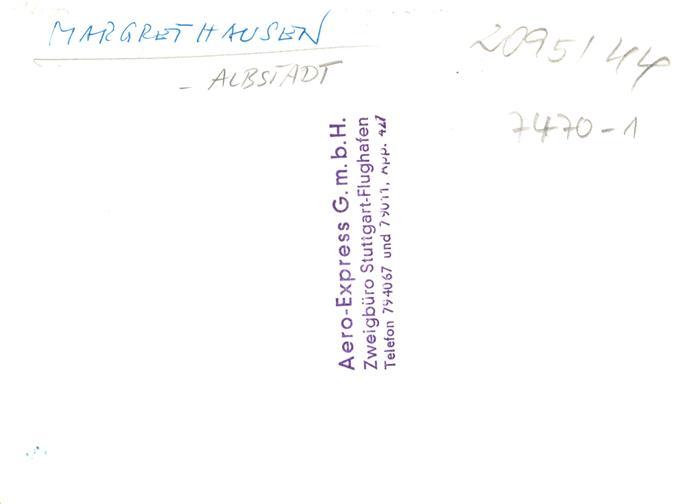 MARGRETHAUSEN
- ALBSTADT
2095/44
7470-1
Aero-Express G.m.b.H.
Zweigbüro Stuttgart-Flughafen
Telefon 794067 und 79011, App. 427